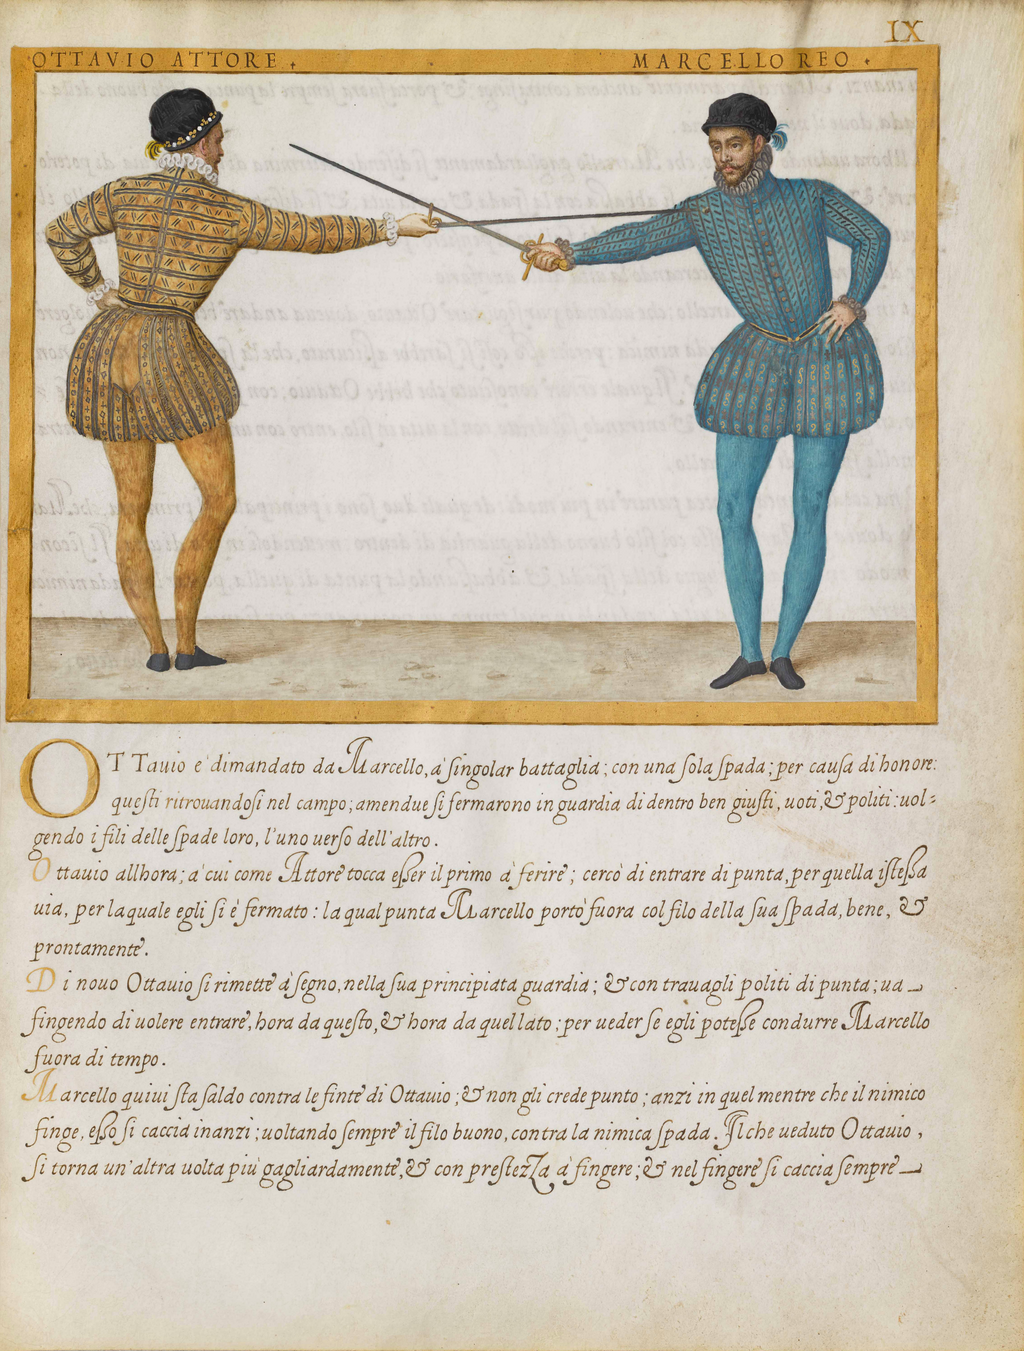 IX
OTTAVIO ATTORE
MARCELLO REO
OTTauio e' dimandato da Marcello, a' singolar battaglia; con una sola spada; per causa di honore:
questi ritrouandosi nel campo; amendue si fermarono in guardia di dentro ben giusti, uoti, & politi: uol=
gendo i fili delle spade loro, l'uno uerso dell'altro.
Ottauio allhora; a' cui come Attore tocca esser il primo a' ferire; cercò di entrare di punta, per quella istessa
uia, per la quale egli si è fermato: la qual punta Marcello portò fuora col filo della sua spada, bene, &
prontamente.
Di nouo Ottauio si rimette à segno, nella sua principiata guardia; & con trauagli politi di punta; ua
fingendo di uolere entrare, hora da questo, & hora da quel lato; per ueder se egli potesse condurre Marcello
fuora di tempo.
Marcello quiui sta saldo contra le finte di Ottauio; & non gli crede punto; anzi in quel mentre che il nimico
finge, esso si caccia inanzi; uoltando sempre il filo buono, contra la nimica spada. Il che ueduto Ottauio,
si torna un'altra uolta più gagliardamente, & con prestezza à fingere; & nel fingere si caccia sempre